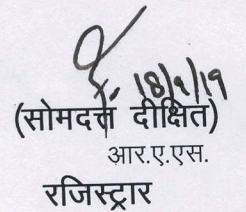 18/9/19
(सोमदत्त दीक्षित)
आर.ए.एस.
रजिस्ट्रार